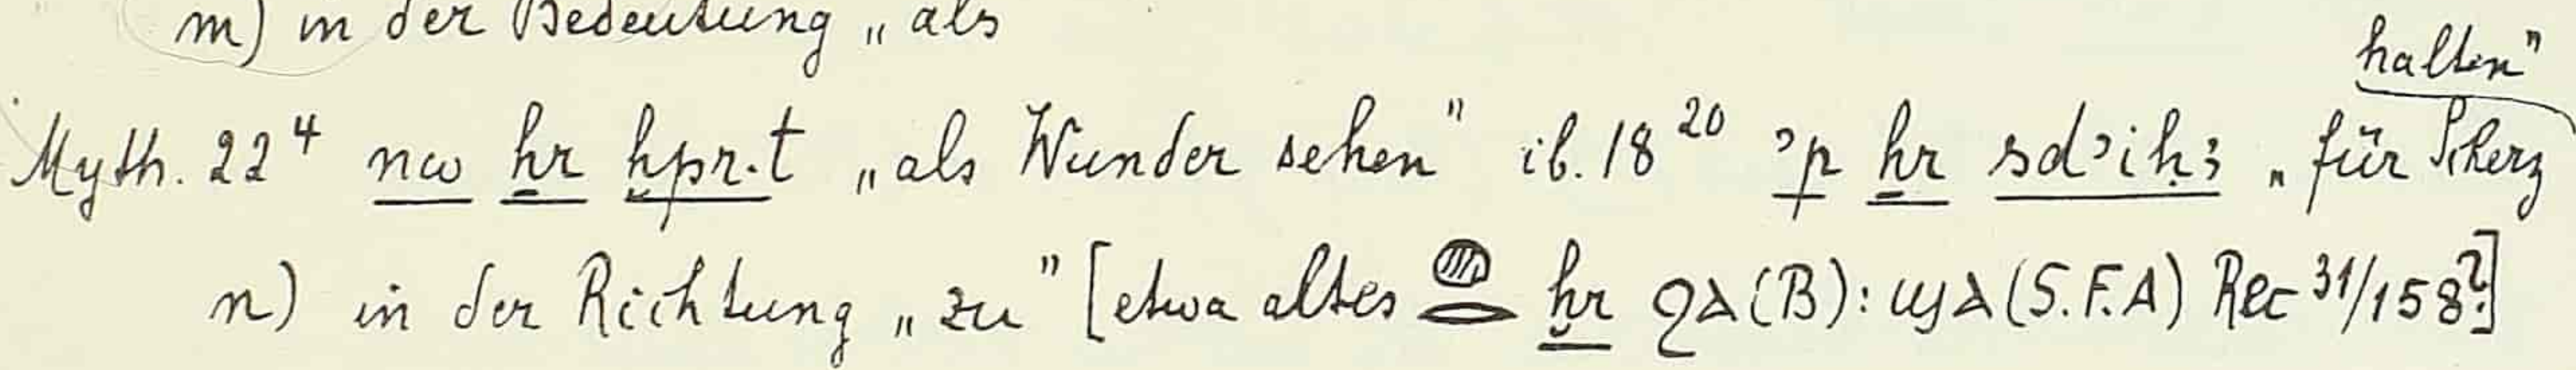 m) in der Bedeutung „als
halten"
Myth. 22⁴ nw ẖr ḫpr.t „als Wunder sehen" ib. 18²⁰ ꜥp ẖr sdꜥiḥꜣ „für Scherz
n) in der Richtung „zu" [etwa altes 𓐍𓂋 ḫr ϩⲁ (B): ϣⲁ (S.F.A) Rec 31/158?]